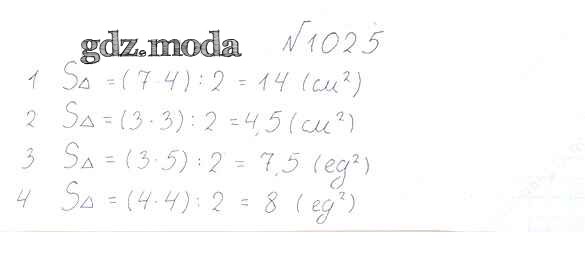 gdz.moda №1025
1 S△ = (7·4) : 2 = 14 (см²)
2 S△ = (3·3) : 2 = 4,5 (см²)
3 S△ = (3·5) : 2 = 7,5 (eg²)
4 S△ = (4·4) : 2 = 8 (eg²)